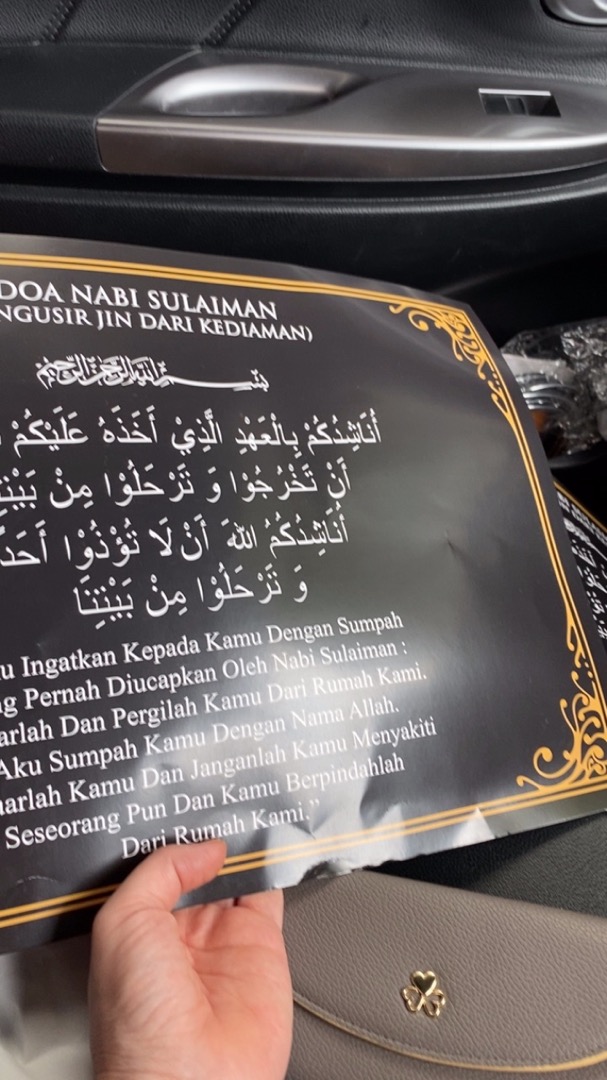 DOA NABI SULAIMAN
NGUSIR JIN DARI KEDIAMAN)
بِسْمِ اللهِ الرَّحْمٰنِ الرَّحِيْمِ
أُنَاشِدُكُمْ بِالْعَهْدِ الَّذِيْ أَخَذَهُ عَلَيْكُمْ
أَنْ تَخْرُجُوْا وَ تَرْحَلُوْا مِنْ
أُنَاشِدُكُمُ اللهَ أَنْ لَا تُؤْذُوْا
وَ تَرْحَلُوْا مِنْ بَيْتِنَا
Ingatkan Kepada Kamu Dengan Sumpah
Pernah Diucapkan Oleh Nabi Sulaiman :
Dan Pergilah Kamu Dari Rumah Kami.
Aku Sumpah Kamu Dengan Nama Allah.
Kamu Dan Janganlah Kamu Menyakiti
Seseorang Pun Dan Kamu Berpindahlah
Dari Rumah Kami."